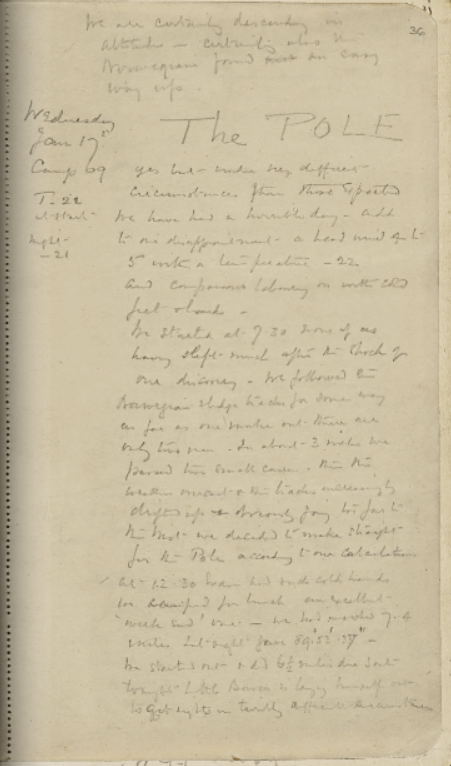 36
We are certainly descending in
altitude - certainly also the
Norwegians found an easy
way up.
Wednesday
Jan 17
Camp 69
T. -22
at start
Night -
-21
The POLE
yes but under very different
circumstances from those expected
We have had a horrible day - add
to our disappointment a head wind 4 to
5 with a temperature -22
and companions labouring on with cold
feet & hands -
We started at 7.30 none of us
having slept much after the shock of
our discovery - We followed the
Norwegian sledge tracks for some way
as far as we make out there are
only two men. In about 3 miles we
passed two small cairns. Then the
weather overcast & the tracks increasingly
drifted up & obviously going too far to
the West we decided to make straight
for the Pole according to our calculations
At 12.30 Evans had such cold hands
we camped for lunch an excellent
'week end' one - we had marched 7.4
miles Lat sight gave 89° 53' 37" -
We started out & did 6½ miles due South
Tonight little Bowers is laying himself out
to get sights in terribly difficult circumstances